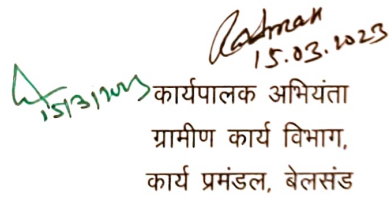 15.03.2023
15/3/2023
कार्यपालक अभियंता
ग्रामीण कार्य विभाग,
कार्य प्रमंडल, बेलसंड